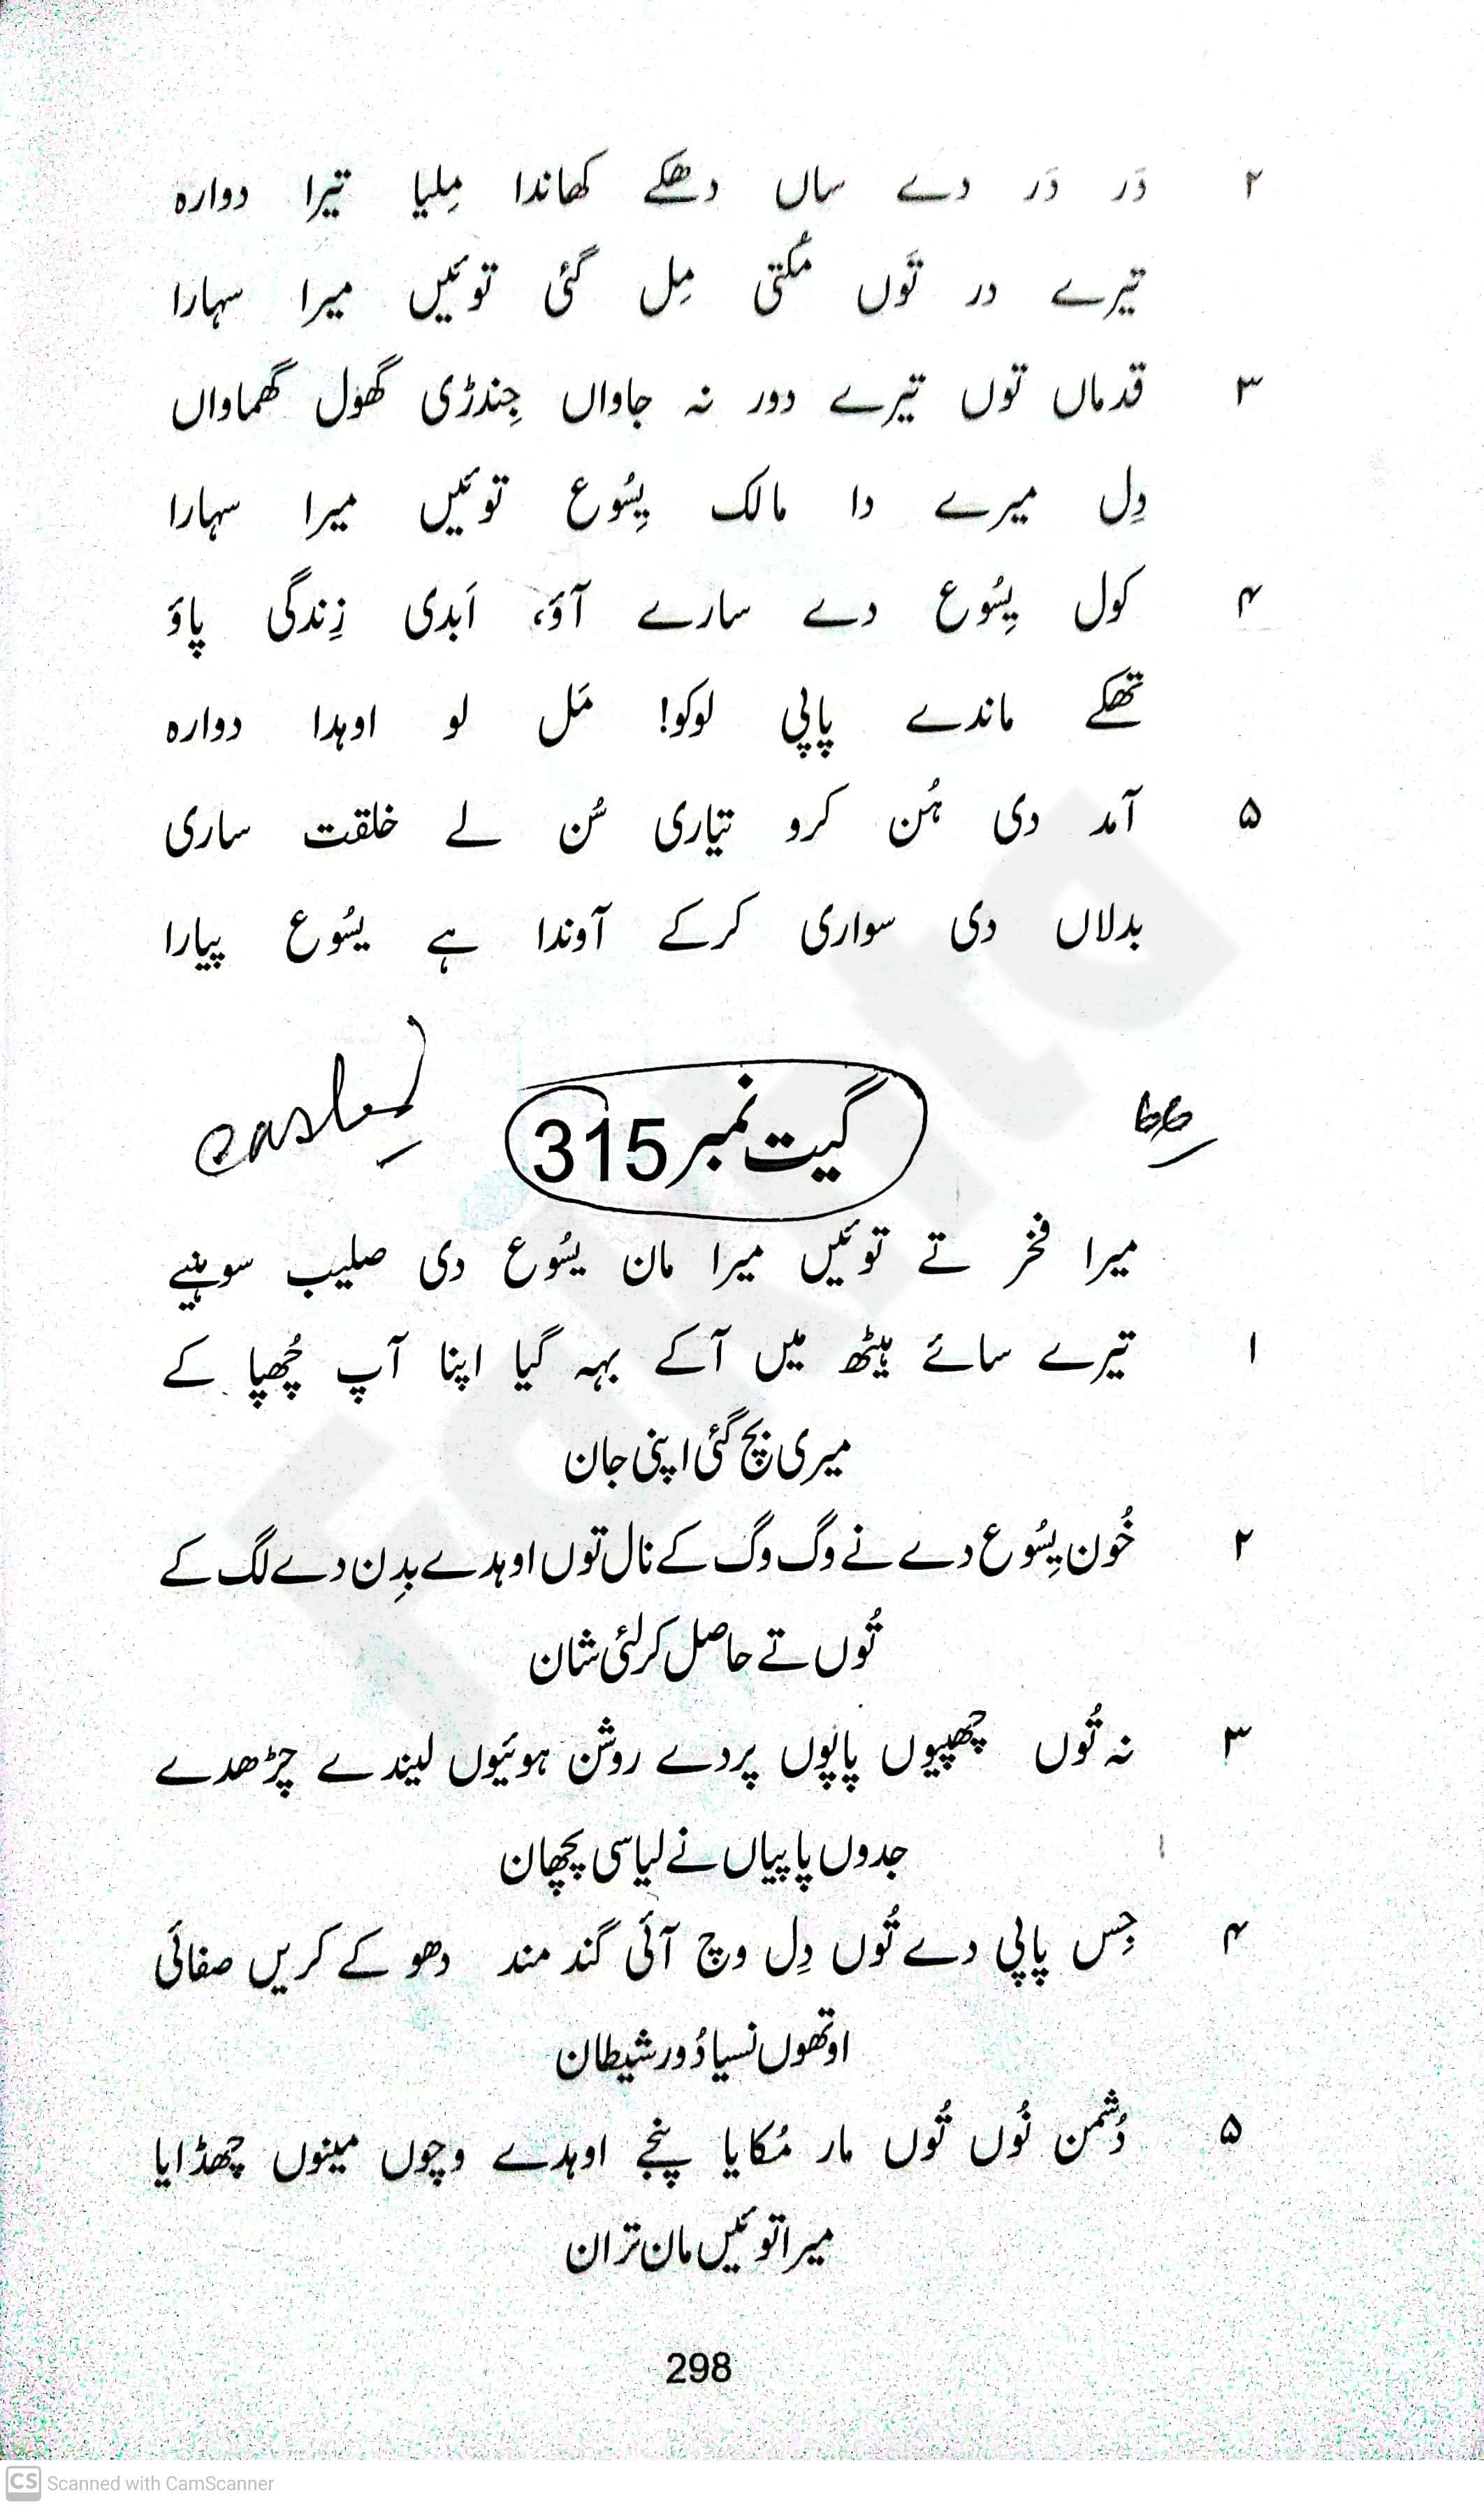 ۲ دَر دَر دے ساں دھکے کھاندا مِلیا تیرا دوارہ
تیرے در تَوں مُکتی مِل گئی توئیں میرا سہارا
۳ قدماں توں تیرے دور نہ جاواں جِندڑی گھول گھماواں
دِل میرے دا مالک یِسُوع توئیں میرا سہارا
۴ کول یِسُوع دے سارے آؤ، اَبدی زِندگی پاؤ
تھکے ماندے پاپی لوکو! مَل لو اوہدا دوارہ
۵ آمد دی ہُن کرو تیاری سُن لے خلقت ساری
بدلاں دی سواری کرکے آوندا ہے یسُوع پیارا
گیت نمبر 315
میرا فخر تے توئیں میرا مان یسُوع دی صلیب سوہنیے
۱ تیرے سائے ہیٹھ میں آکے بہہ گیا اپنا آپ چُھپا کے
میری بچ گئی اپنی جان
۲ خُون یِسُوع دے نے وگ وگ کے نال توں اوہدے بدِن دے لگ کے
تُوں تے حاصل کر لئی شان
۳ نہ تُوں چھپیوں پاپوں پردے روشن ہوئیوں لیندے چڑھدے
جدوں پاپیاں نے لیا سی پچھان
۴ جِس پاپی دے تُوں دِل وچ آئی گند مند دھو کے کریں صفائی
اوتھوں نسیا دُور شیطان
۵ دُشمن نُوں تُوں مار مُکایا پنجے اوہدے وچوں مینوں چھڈایا
میرا توئیں مان تران
298
CS Scanned with CamScanner